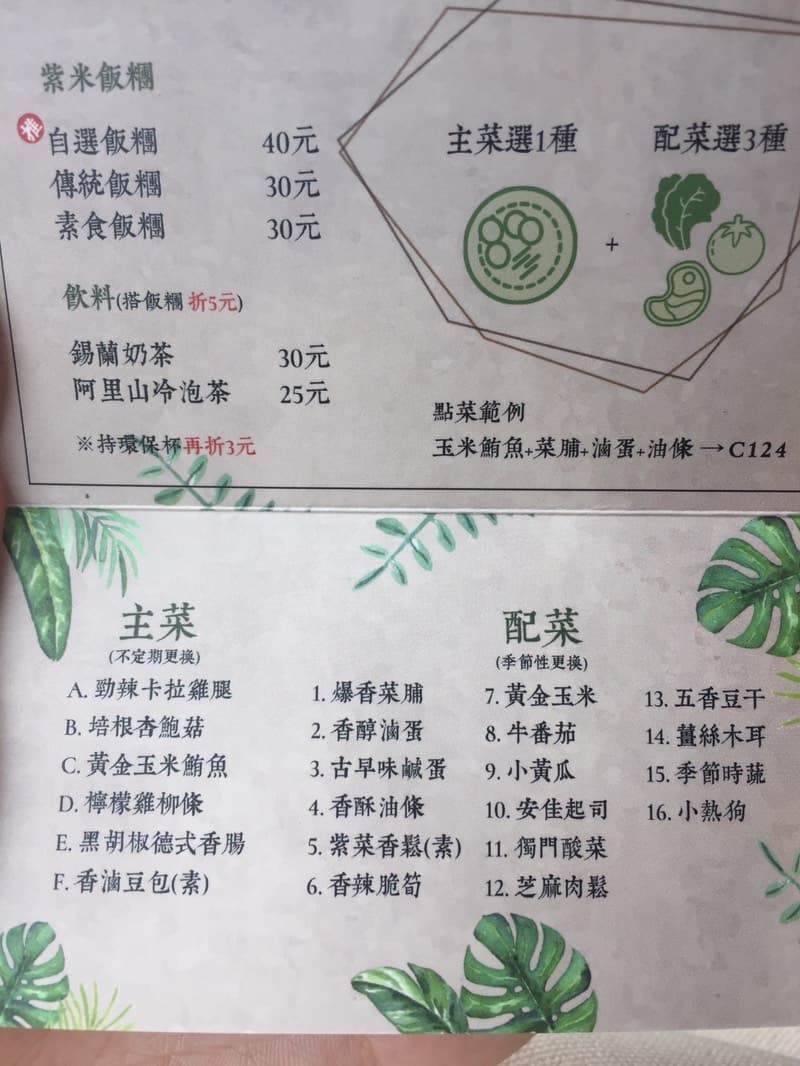 紫米飯糰
推
自選飯糰 40元
傳統飯糰 30元
素食飯糰 30元
飲料(搭飯糰 折5元)
錫蘭奶茶 30元
阿里山冷泡茶 25元
※持環保杯再折3元
主菜選1種 配菜選3種
+
點菜範例
玉米鮪魚+菜脯+滷蛋+油條→C124
主菜
(不定期更換)
A. 勁辣卡拉雞腿
B. 培根杏鮑菇
C. 黃金玉米鮪魚
D. 檸檬雞柳條
E. 黑胡椒德式香腸
F. 香滷豆包(素)
配菜
(季節性更換)
1. 爆香菜脯
2. 香醇滷蛋
3. 古早味鹹蛋
4. 香酥油條
5. 紫菜香鬆(素)
6. 香辣脆筍
7. 黃金玉米
8. 牛番茄
9. 小黃瓜
10. 安佳起司
11. 獨門酸菜
12. 芝麻肉鬆
13. 五香豆干
14. 薑絲木耳
15. 季節時蔬
16. 小熱狗